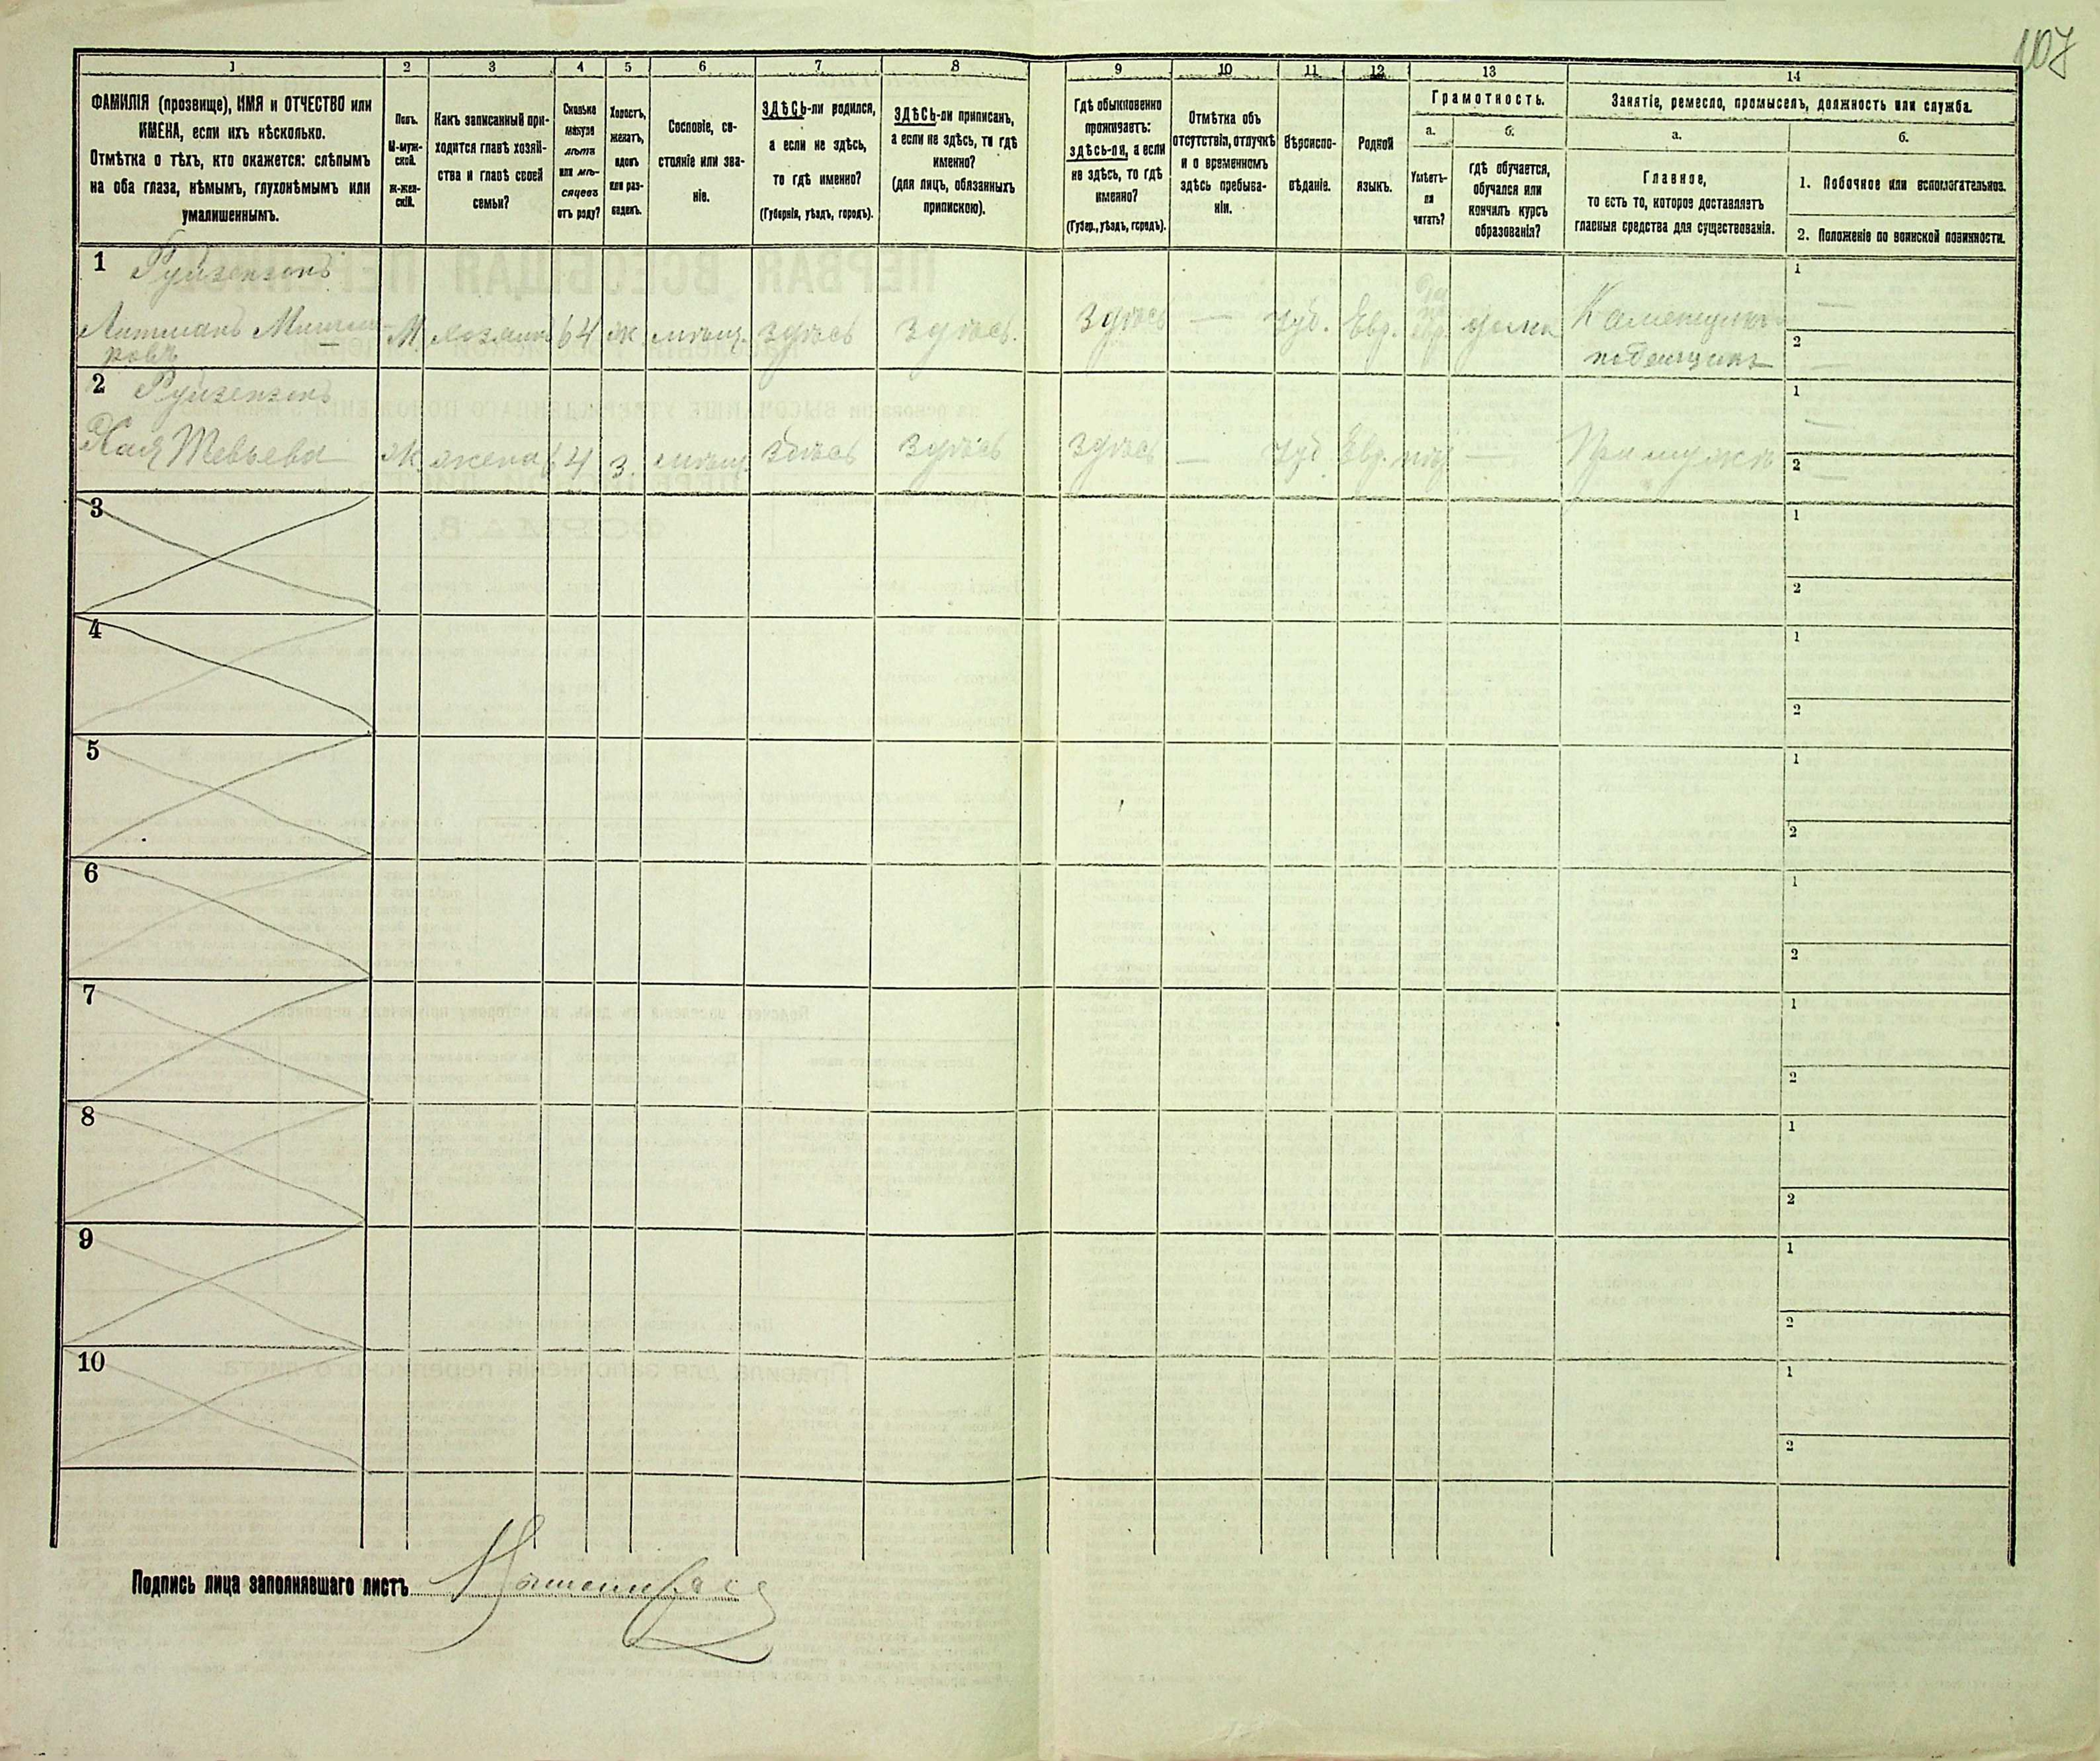 107
1 2 3 4 5 6 7 8 9 10 11 12 13 14
ФАМИЛІЯ (прозвище), ИМЯ и ОТЧЕСТВО или
ИМЕНА, если ихъ нѣсколько.
Отмѣтка о тѣхъ, кто окажется: слѣпымъ
на оба глаза, нѣмымъ, глухонѣмымъ или
умалишеннымъ.
Полъ.
М-муж-
ской.
ж-жен-
скій.
Какъ записанный при-
ходится главѣ хозяй-
ства и главѣ своей
семьи?
Сколько
минуло
лѣтъ
или мѣ-
сяцевъ
отъ роду?
Холостъ,
женатъ,
вдовъ
или раз-
веденъ.
Сословіе, со-
стояніе или зва-
ніе.
ЗДѢСЬ-ли родился,
а если не здѣсь,
то гдѣ именно?
(Губернія, уѣздъ, городъ).
ЗДѢСЬ-ли приписанъ,
а если не здѣсь, то гдѣ
именно?
(для лицъ, обязанныхъ
припискою).
Гдѣ обыкновенно
проживаетъ:
здѣсь-ли, а если
не здѣсь, то гдѣ
именно?
(Губер., уѣздъ, городъ).
Отмѣтка объ
отсутствіи, отлучкѣ
и о временномъ
здѣсь пребыва-
ніи.
Вѣроиспо-
вѣданіе.
Родной
языкъ.
Грамотность.
а.
Умѣетъ-
ли
читать?
б.
гдѣ обучается,
обучался или
кончилъ курсъ
образованія?
Занятіе, ремесло, промыселъ, должность или служба.
а.
Главное,
то есть то, которое доставляетъ
главныя средства для существованія.
б.
1. Побочное или вспомогательное.
2. Положеніе по воинской повинности.
1 Руйзензонъ
Литманъ М. хозяинъ 64 ж мѣщ. здѣсь здѣсь. здѣсь — іуд. Евр. дома Каменщикъ
поденщикъ
1 —
2 —
2 Руйзензонъ
Хая Тевьева ж. жена 64 з. мѣщ. здѣсь здѣсь здѣсь — іуд Евр. нѣт — При мужѣ
1 —
2 —
3
1
2
4
1
2
5
1
2
6
1
2
7
1
2
8
1
2
9
1
2
10
1
2
Подпись лица заполнявшаго листъ